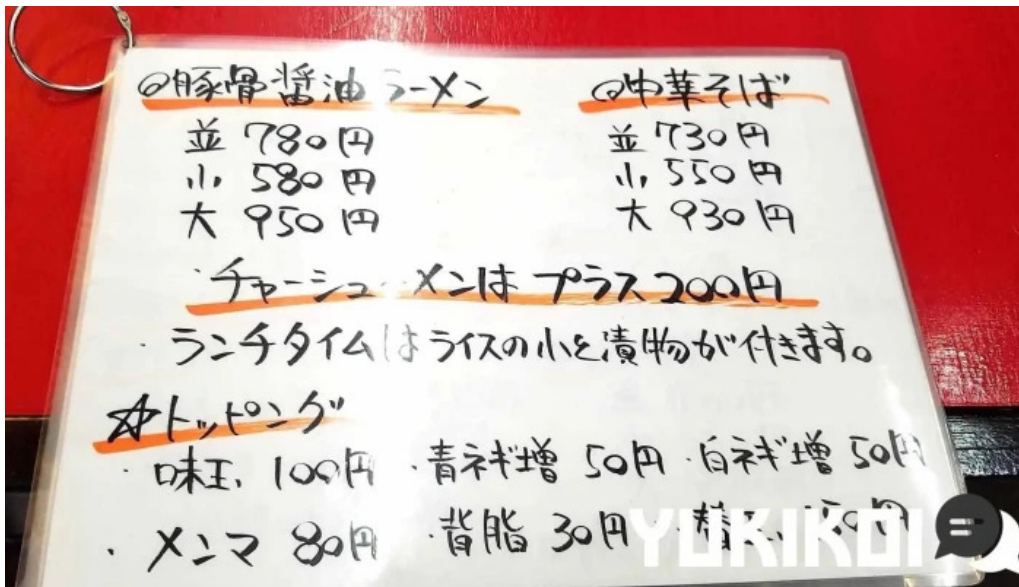 ◎豚骨醤油ラーメン ◎中華そば
並 780円 並 730円
小 580円 小 550円
大 950円 大 930円
・チャーシューメンは プラス200円
・ランチタイムはライスの小と漬物が付きます。
☆トッピング
・味玉 100円 ・青ネギ増 50円 ・白ネギ増 50円
・メンマ 80円 ・背脂 30円
YUKIKOI